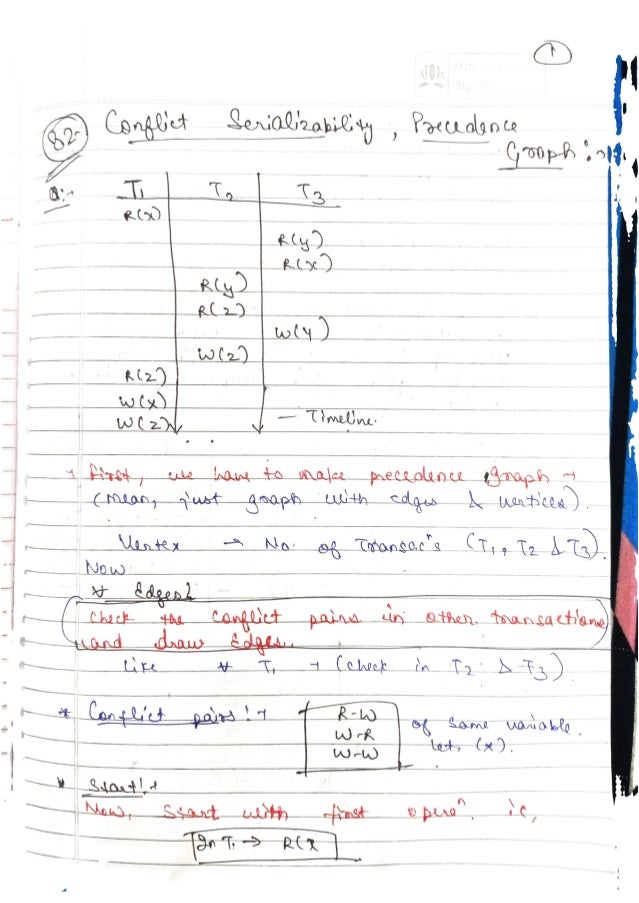 1
82- Conflict Serializability, Precedence
Graph :-
Q:- T1 T2 T3
R(x)
R(y)
R(x)
R(y)
R(z)
W(y)
W(z)
R(z)
W(x)
W(z)
- Timeline.
→ first, we have to make precedence graph →
(mean, just graph with edges & vertices).
Vertex → No. of Transacⁿs (T1, T2 & T3).
Now
* Edges
Check the conflict pairs in other transactions
and draw Edges.
like * T1 → (check in T2 & T3)
* Conflict pairs! → R-W
W-R
W-W
of same variable.
let, (x).
* Start! →
Now, Start with first operⁿ. ie,
In T1 → R(x